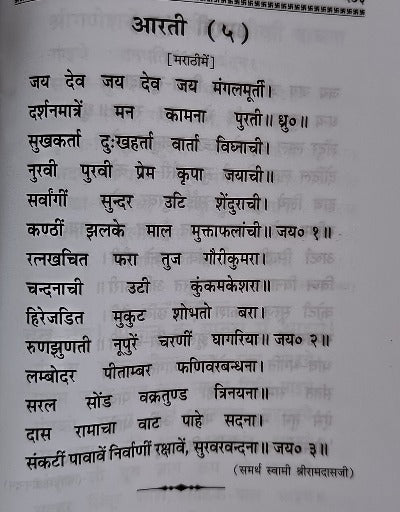 आरती (५)
[मराठीमें]
जय देव जय देव जय मंगलमूर्ती।
दर्शनमात्रें मन कामना पुरती॥ ध्रु०॥
सुखकर्ता दुःखहर्ता वार्ता विघ्नाची।
नुरवी पुरवी प्रेम कृपा जयाची।
सर्वांगीं सुन्दर उटि शेंदुराची।
कण्ठीं झलके माल मुक्ताफलांची॥ जय० १॥
रत्नखचित फरा तुज गौरीकुमरा।
चन्दनाची उटी कुंकमकेशरा।
हिरेजडित मुकुट शोभतो बरा।
रुणझुणती नूपुरें चरणीं घागरिया॥ जय० २॥
लम्बोदर पीताम्बर फणिवरबन्धना।
सरल सोंड वक्रतुण्ड त्रिनयना।
दास रामाचा वाट पाहे सदना।
संकटीं पावावें निर्वाणीं रक्षावें, सुरवरवन्दना॥ जय० ३॥
(समर्थ स्वामी श्रीरामदासजी)